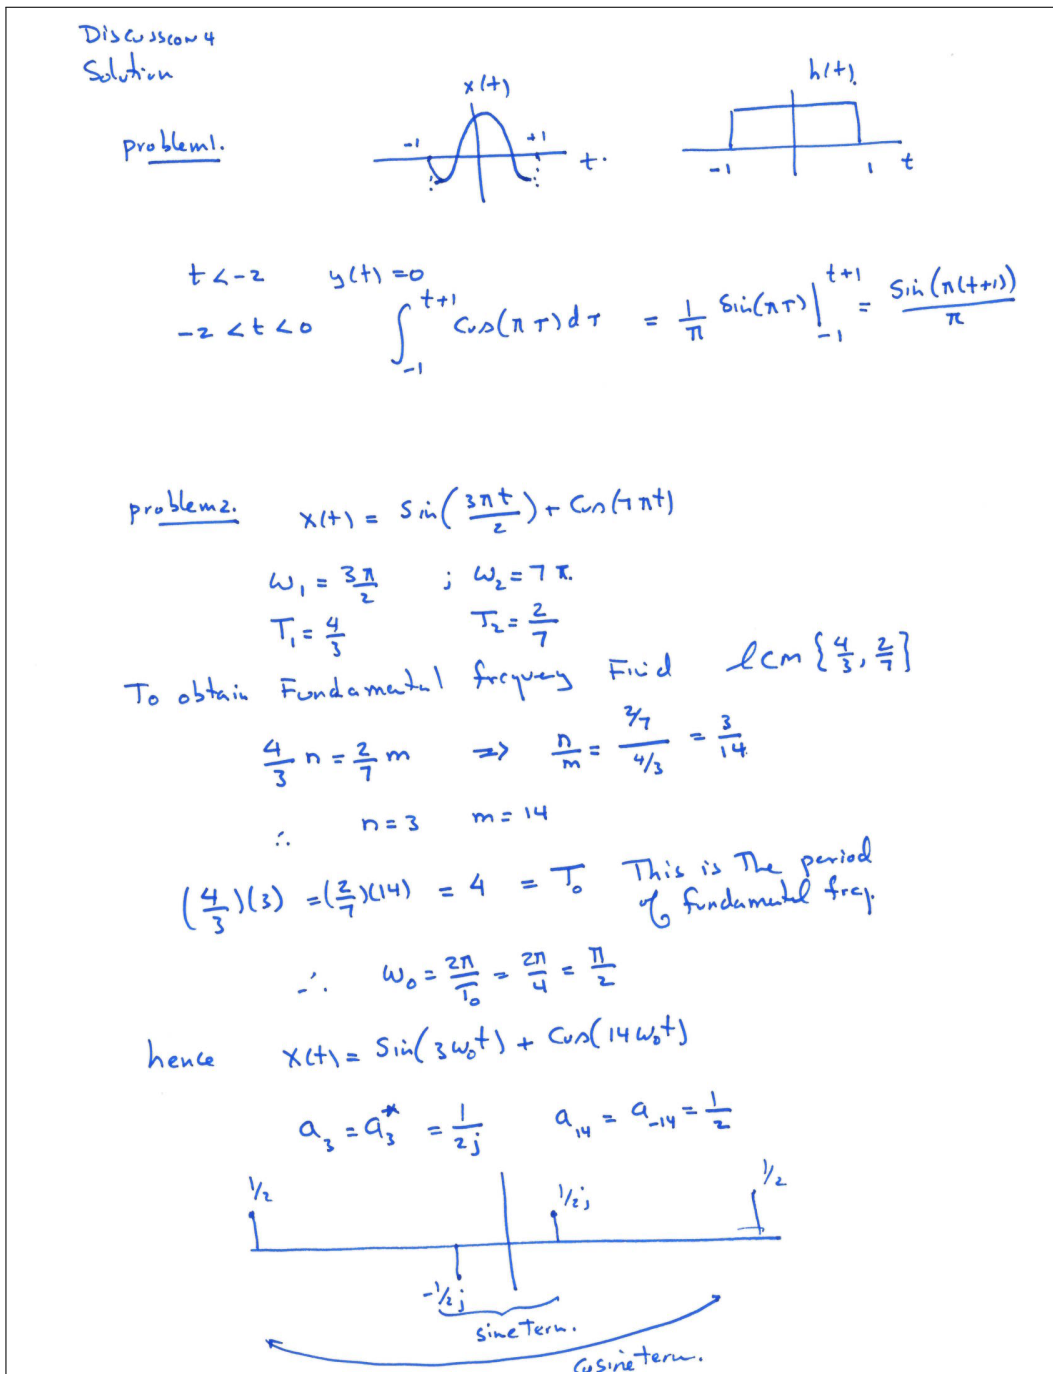 Discussion 4
Solution
problem1.
x(t)
-1
+1
t.
h(t).
-1
1
t
t < -2 y(t) = 0
-2 < t < 0 ∫_{-1}^{t+1} Cos(π τ) dτ = 1/π Sin(πτ) |_{-1}^{t+1} = Sin(π(t+1))/π
problem2. x(t) = Sin(3πt/2) + Cos(7πt)
ω₁ = 3π/2 ; ω₂ = 7π.
T₁ = 4/3 T₂ = 2/7
To obtain Fundamental frequency Find lcm {4/3, 2/7}
4/3 n = 2/7 m => n/m = (2/7)/(4/3) = 3/14
∴ n = 3 m = 14
(4/3)(3) = (2/7)(14) = 4 = T₀ This is The period
of fundamental freq.
∴ ω₀ = 2π/T₀ = 2π/4 = π/2
hence x(t) = Sin(3ω₀t) + Cos(14ω₀t)
a₃ = a₃* = 1/2j a₁₄ = a₋₁₄ = 1/2
1/2
1/2j
1/2
-1/2j
sine Term.
Cosine term.